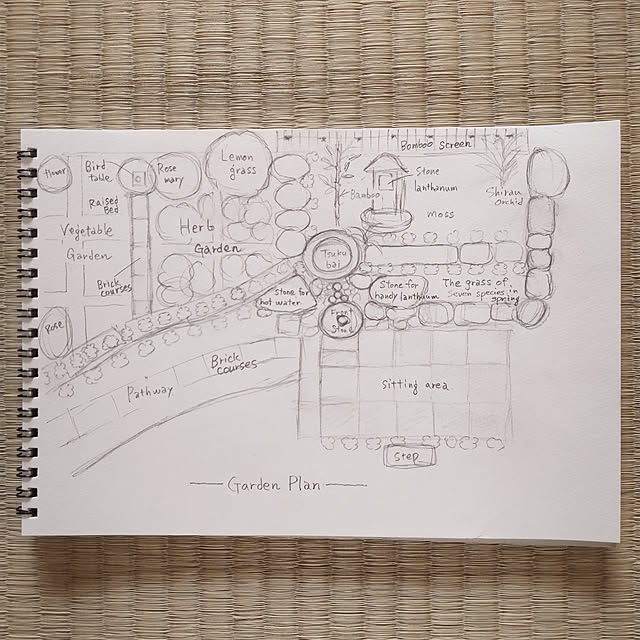 flower
Bird
table
Rose
mary
Lemon
grass
Bamboo Screen
Raised
Bed
Vegetable
Garden
Herb
Garden
Bamboo
Stone
lanthanum
moss
Shirau
Orchid
Tsuku
bai
Brick
courses
Stone for
hot water
Stone for
handy lanthaum
The grass of
Seven species in
spring
Front
Stone
Rose
Brick
courses
Pathway
Sitting area
Step
Garden Plan